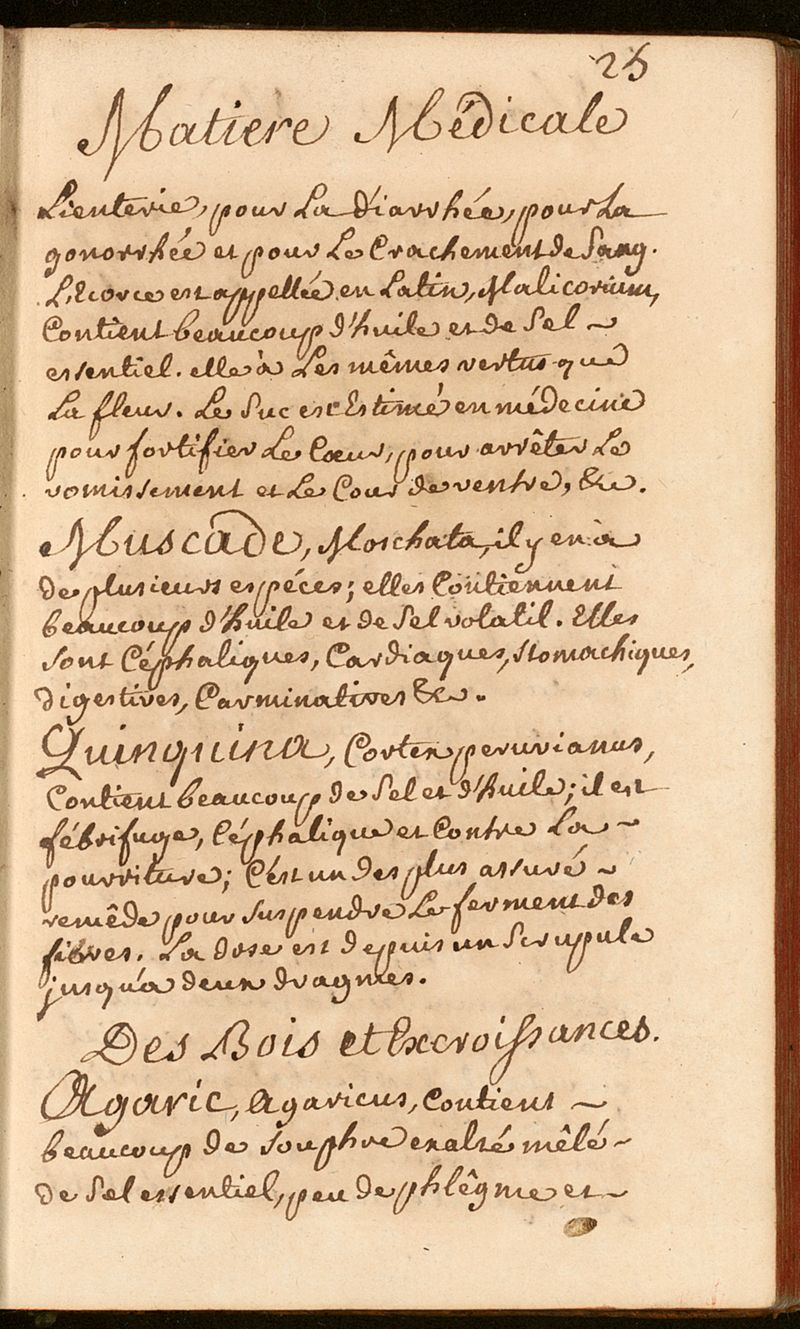 25
Matiere Médicale
Lienterie, pour La diarrhée, pour La
gonorrhée et pour Le Crachement de Sang.
L'Ecorce est appellée en Latin, Malicorium,
Contient beaucoup d'huile et de Sel ~
essentiel. elle à Les mêmes vertus que
La fleur. Le Suc est Estimé en médecine
pour fortifier Le Cœur, pour arrêter Le
vomissement et Le Cour de ventre, &c.
Muscade, Moschata, il y en à
de plusieurs espéces; elles Contiennent
beaucoup d'huile et de Sel volatil. Elles
sont Céphaliques, Cardiaques, stomachiques,
digestives, Carminatives &c.
Quinquina, Cortex peruvianus,
Contient beaucoup de Sel et d'huile; il est
fébrifuge, Céphalique et Contre La ~
pourriture; C'est un des plus assuré ~
remêde pour suspendre Le ferment des
fibres. La dose est depuis un Scrupule
jusqu'a deux dragmes.
Des Bois et Excroissances.
Agaric, Agaricus, Contient ~
beaucoup de Souphre exalté mêlé ~
de Sel essentiel, peu de phlêgme et ~